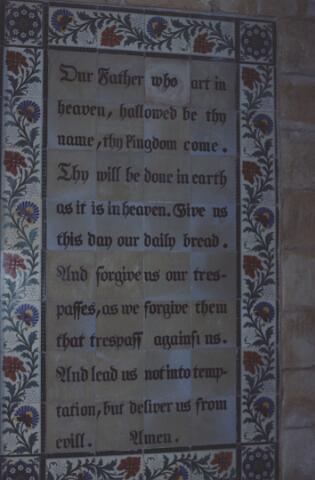 Our Father who art in
heaven, hallowed be thy
name, thy Kingdom come.
Thy will be done in earth
as it is in heaven. Give us
this day our daily bread.
And forgive us our tres-
passes, as we forgive them
that trespass against us.
And lead us not into temp-
tation, but deliver us from
evill. Amen.